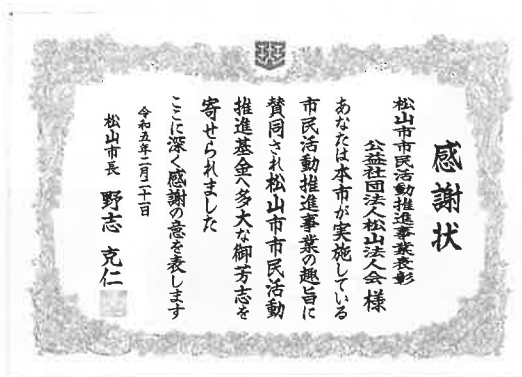 感謝状
松山市市民活動推進事業表彰
公益社団法人松山法人会 様
あなたは本市が実施している
市民活動推進事業の趣旨に
賛同され松山市市民活動
推進基金へ多大な御芳志を
寄せられました
ここに深く感謝の意を表します
令和五年二月二十一日
松山市長 野志 克仁